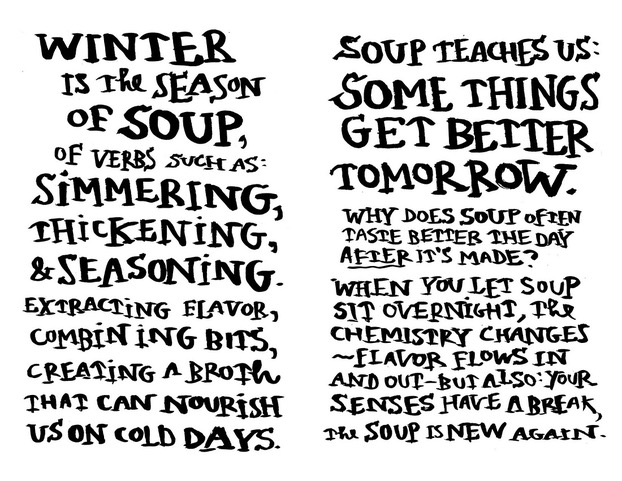 WINTER
IS THE SEASON
OF SOUP,
OF VERBS SUCH AS:
SIMMERING,
THICKENING,
& SEASONING.
EXTRACTING FLAVOR,
COMBINING BITS,
CREATING A BROTH
THAT CAN NOURISH
US ON COLD DAYS.
SOUP TEACHES US:
SOME THINGS
GET BETTER
TOMORROW.
WHY DOES SOUP OFTEN
TASTE BETTER THE DAY
AFTER IT'S MADE?
WHEN YOU LET SOUP
SIT OVERNIGHT, THE
CHEMISTRY CHANGES
~FLAVOR FLOWS IN
AND OUT-BUT ALSO: YOUR
SENSES HAVE A BREAK,
THE SOUP IS NEW AGAIN.